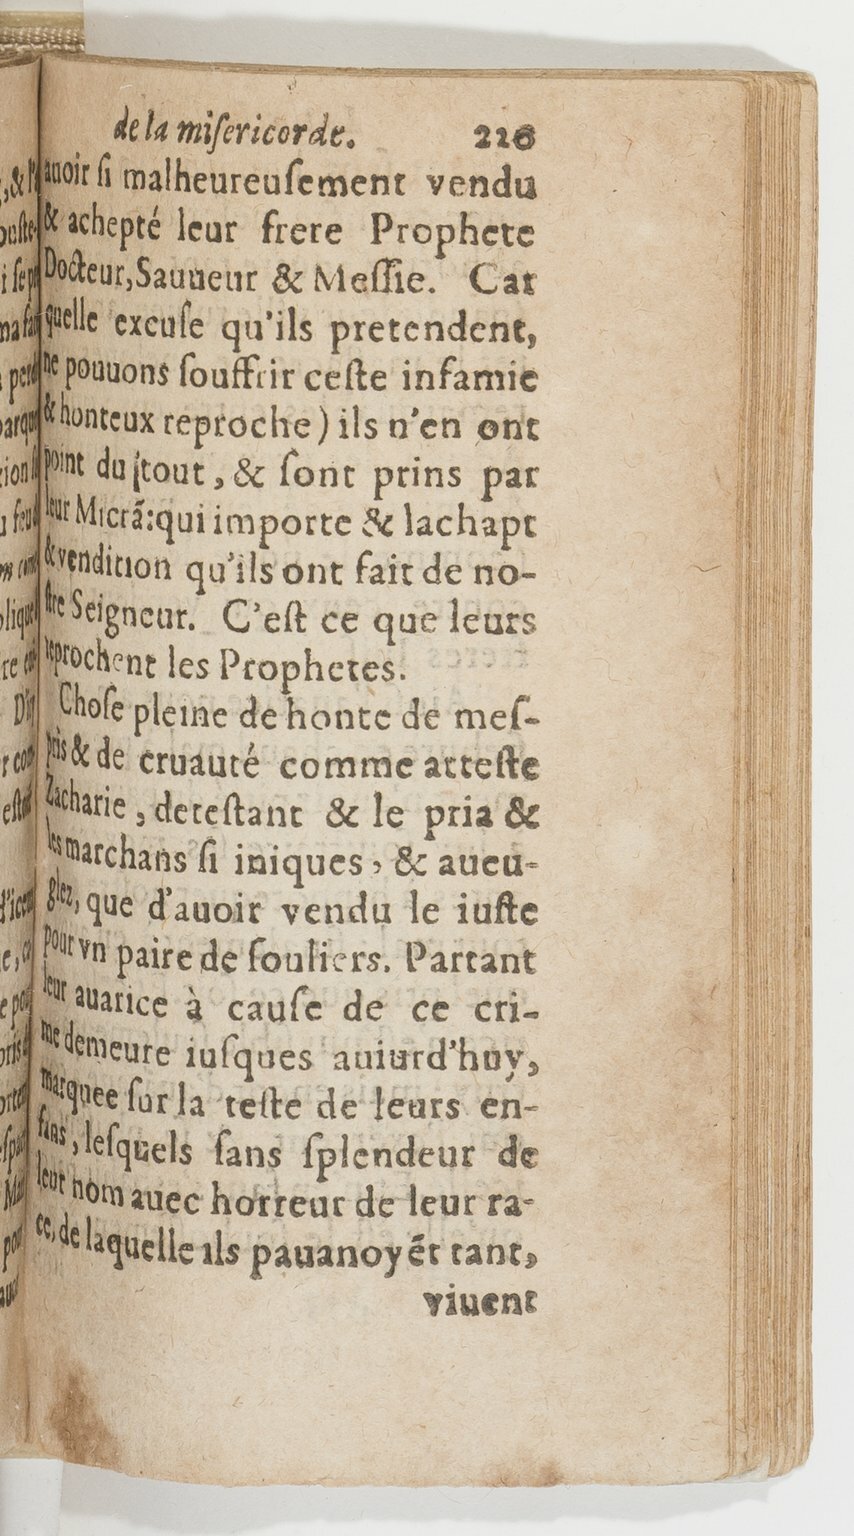 de la miſericorde. 216
auoir ſi malheureuſement vendu
& achepté leur frere Prophete
Docteur, Sauueur & Meſſie. Car
quelle excuſe qu'ils pretendent,
ne pouuons ſouffrir ceſte infamie
& honteux reproche) ils n'en ont
point du tout, & ſont prins par
leur Micrã: qui importe & lachapt
& vendition qu'ils ont fait de no-
ſtre Seigneur. C'eſt ce que leurs
reprochent les Prophetes.
Choſe pleine de honte de meſ-
pris & de cruauté comme atteſte
Zacharie, deteſtant & le pria &
les marchans ſi iniques, & aueu-
glez, que d'auoir vendu le iuſte
pour vn paire de ſouliers. Partant
leur auarice à cauſe de ce cri-
me demeure iuſques auiurd'huy,
marquee ſur la teſte de leurs en-
fans, leſquels ſans ſplendeur de
leur nom auec horreur de leur ra-
ce, de laquelle ils pauanoyẽt tant,
viuent